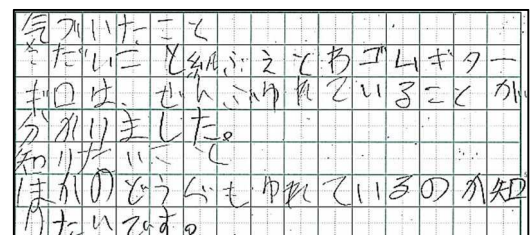 気づいたこと
さだいこと紙ぶえとわゴムギター
ギロは、ぜんぶゆれていることが
分かりました。
知りたいこと
ほかのどうぐもゆれているのか知
りたいです。